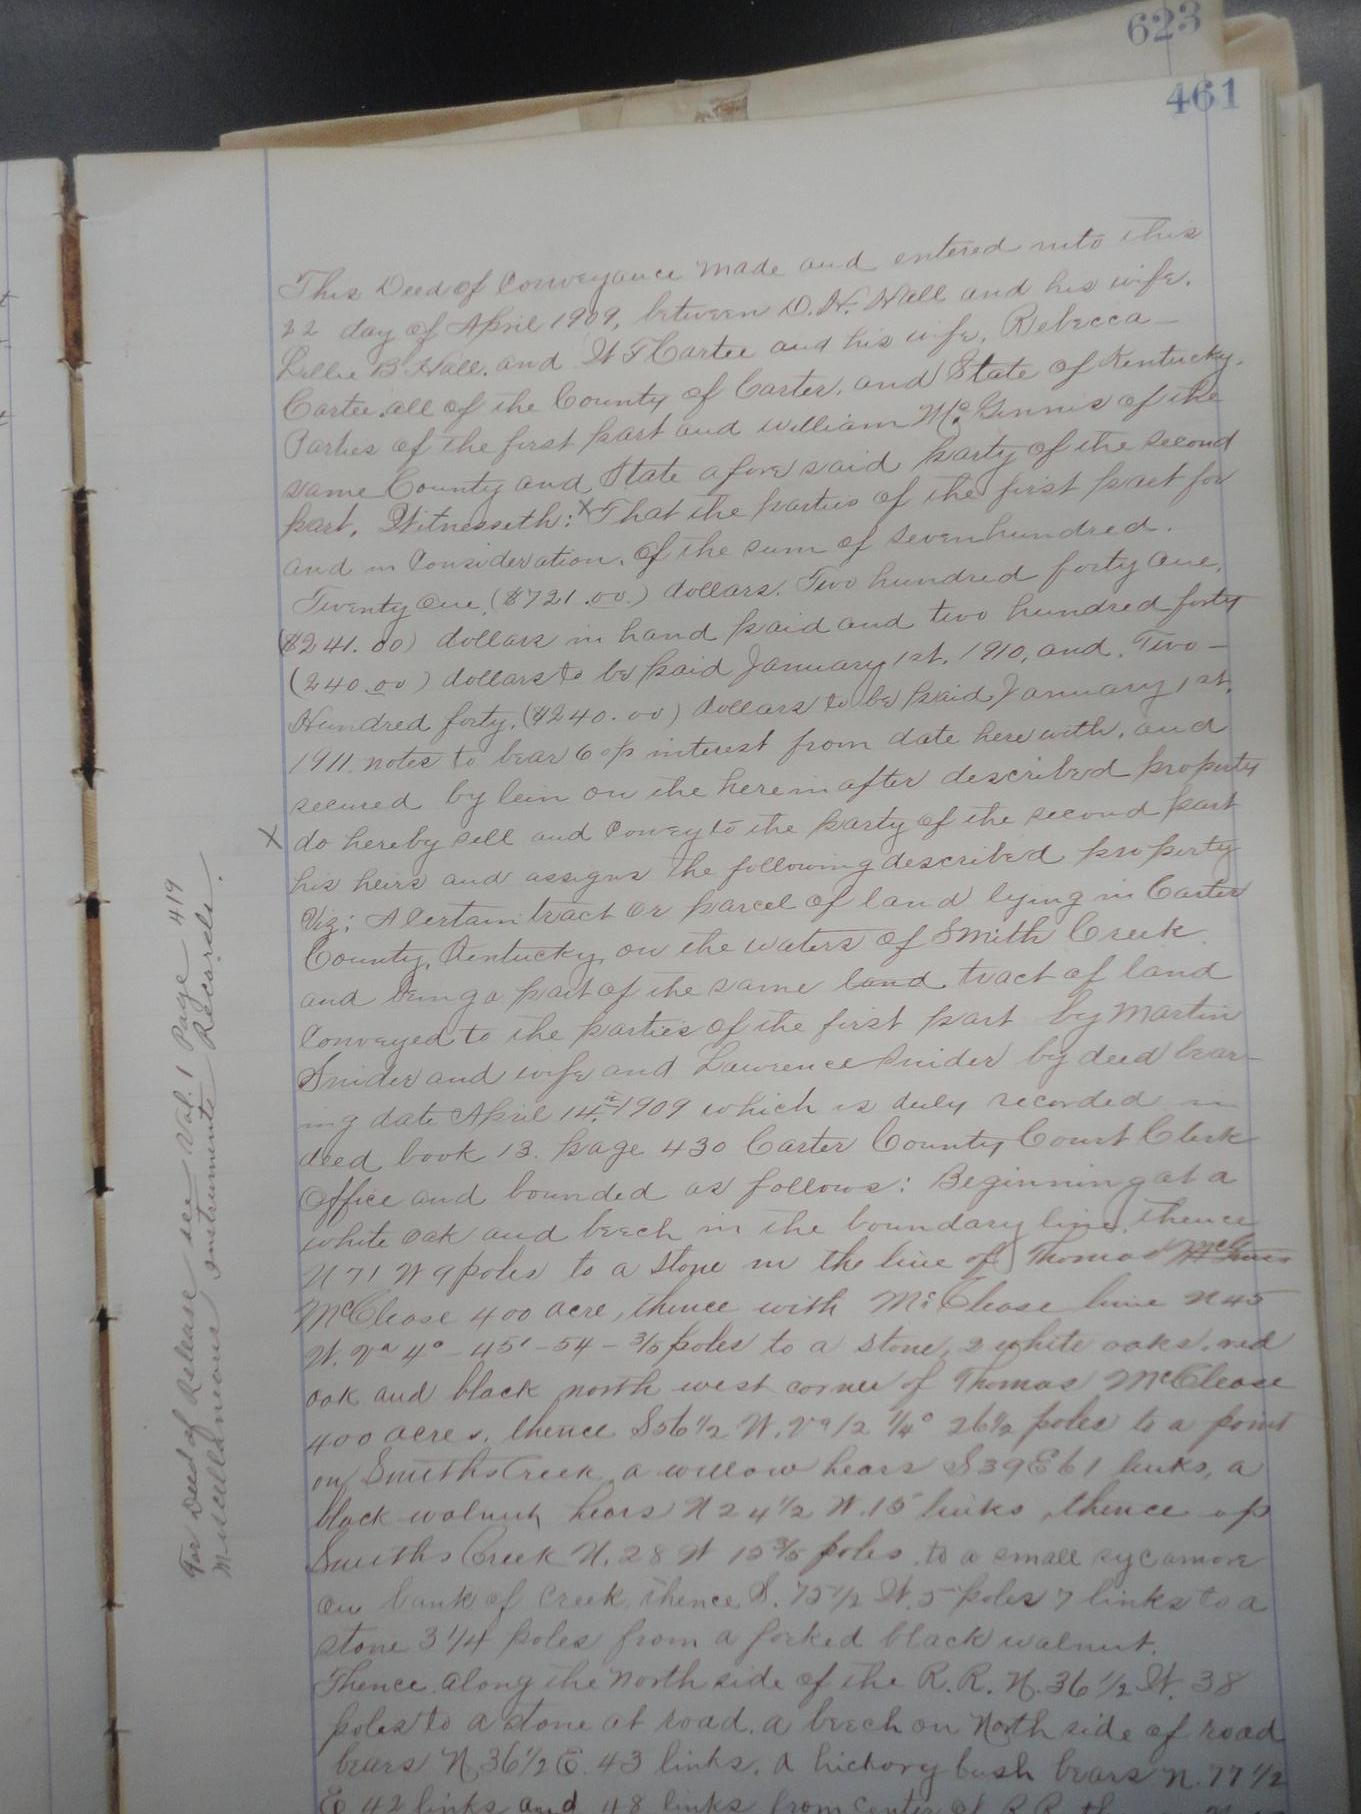 623
461
This Deed of Conveyance made and entered into this
22 day of April 1909, between O. H. Hall and his wife,
Lillie B Hall, and W T Cartee and his wife, Rebecca
Cartee, all of the County of Carter, and State of Kentucky,
Parties of the first part and William McGinnis of the
same County and State afore said party of the second
part, Witnesseth: x That the parties of the first part for
and in Consideration, of the sum of seven hundred.
Twenty One, ($721.00) dollars. Two hundred forty One,
($241.00) dollars in hand paid and two hundred forty
(240.00) dollars to be paid January 1st, 1910, and, Two
Hundred forty, ($240.00) dollars to be paid January 1st,
1911 notes to bear 6 % interest from date here with, and
secured by lein on the herein after described property
x do hereby sell and Convey to the party of the second part
his heirs and assigns the following described property
Viz; A Certain tract or parcel of land lying in Carter
County, Kentucky, on the waters of Smith Creek
and being a part of the same land tract of land
Conveyed to the parties of the first part by Martin
Snider and wife and Lawrence Snider by deed bear-
ing date April 14th 1909 which is duly recorded in
deed book 13. page 430 Carter County Court Clerk
Office and bounded as follows: Beginning at a
white oak and beech in the boundary line, thence
N 71 W 9 poles to a stone in the line of Thomas
McClease 400 acre, thence with McClease line N 45
W. Va 4° - 45' - 54 - 3/5 poles to a stone, 2 white oaks, red
oak and black north west corner of Thomas McClease
400 acres, thence S 56 1/2 W. Va 12 1/4° 26 1/2 poles to a point
on Smiths Creek, a willow bears S 39 E 61 links, a
black walnut bears N 24 1/2 W. 15 links, thence up
Smiths Creek N. 28 W 15 3/5 poles, to a small sycamore
on bank of creek, thence S. 75 1/2 W. 5 poles 7 links to a
stone 3 1/4 poles from a forked black walnut,
Thence along the North side of the R. R. N. 36 1/2 W. 38
poles to a stone at road, a beech on North side of road
bears N 36 1/2 E. 43 links, a hickory bush bears N. 77 1/2
E 42 links and 48 links from center of R R
For Deed of Release see Vol. 1 Page 419
Miscellaneous Instruments Records.